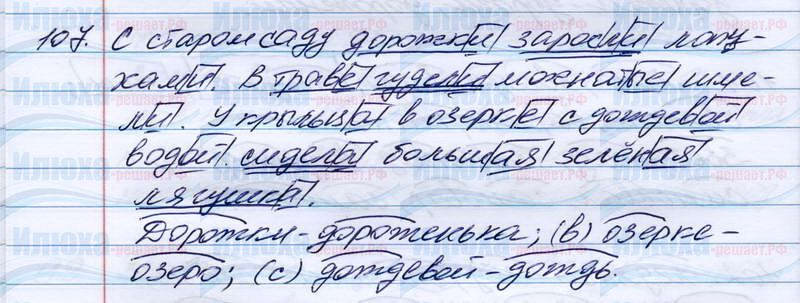 107. С старом саду дорожки заросли лопу-
хами. В траве гудели мохнатые шме-
ли. У крыльца в озерке с дождевой
водой сидела большая зелёная
лягушка.
Дорожки - дороженька; (в) озерке -
озеро; (с) дождевой - дождь.